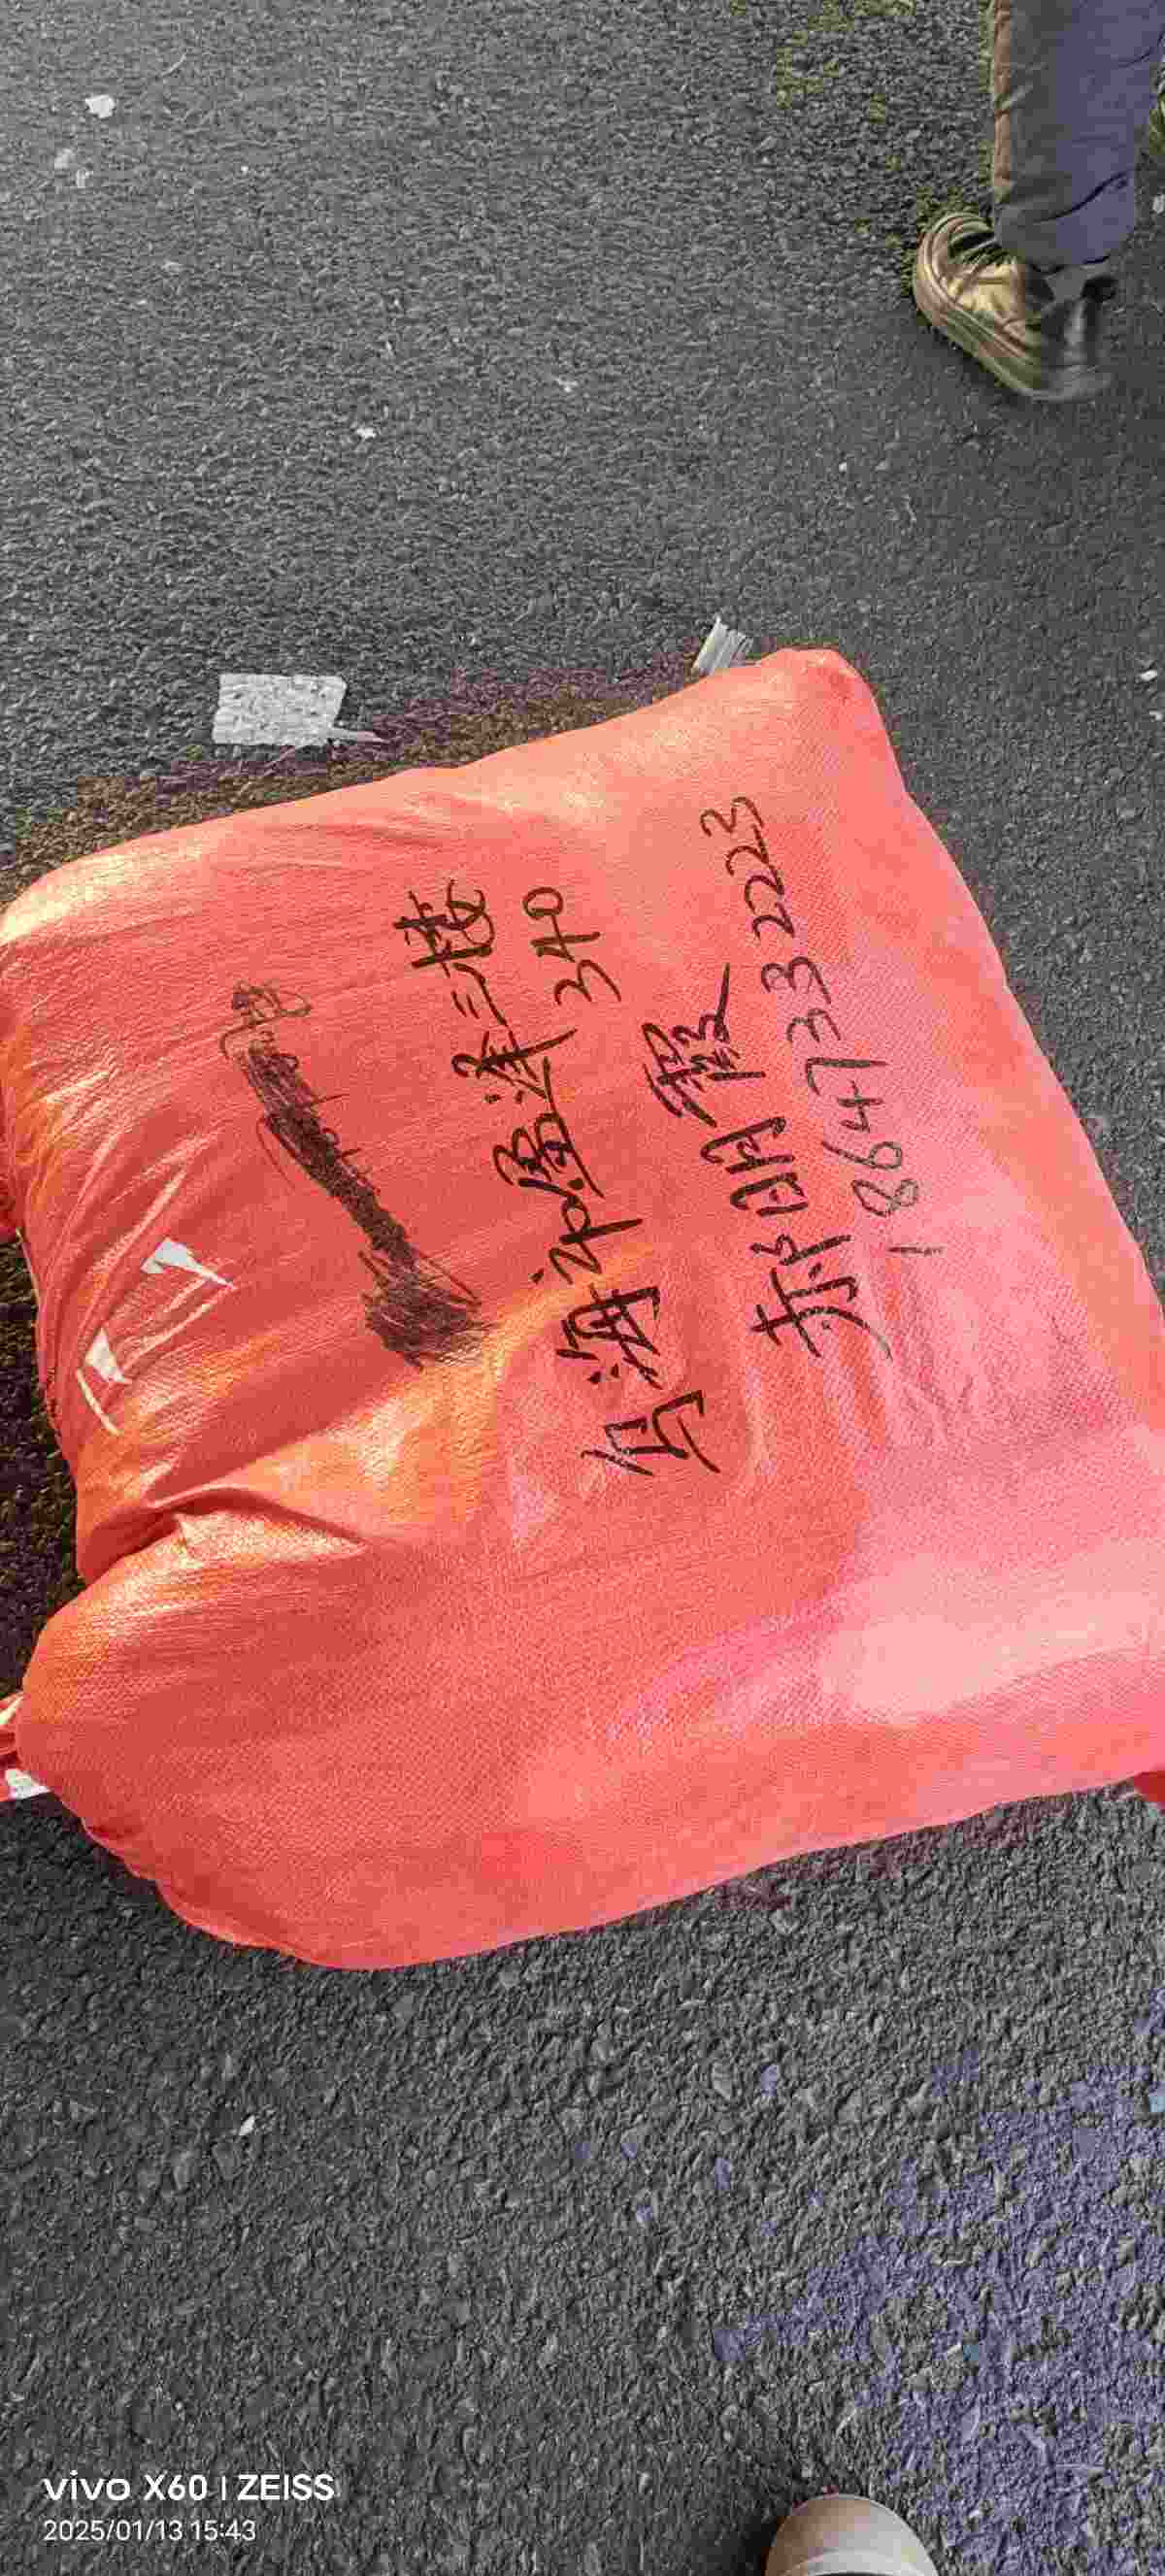 乌海 三楼
340
郝明霞
18647332223
vivo X60 | ZEISS
2025/01/13 15:43